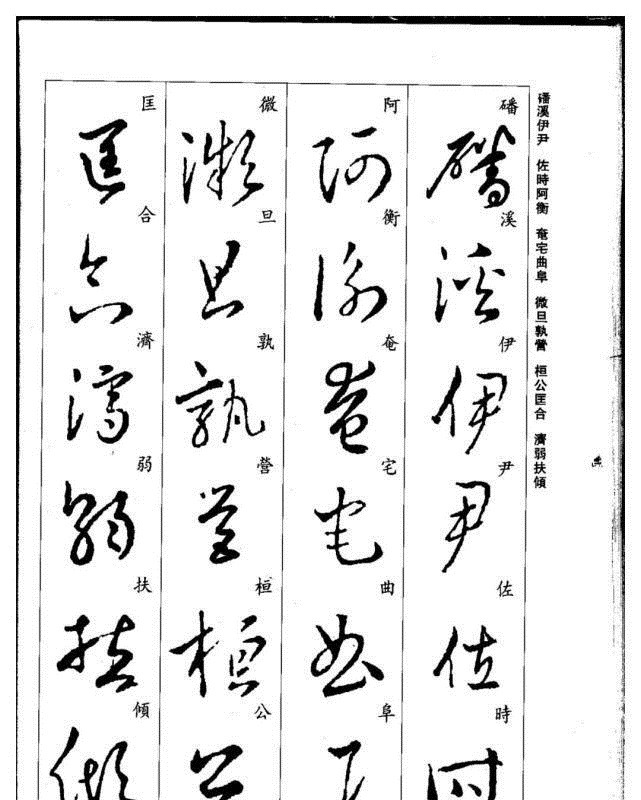 磻溪伊尹 佐時阿衡 奄宅曲阜 微旦孰營 桓公匡合 濟弱扶傾
磻溪伊尹佐時
阿衡奄宅曲阜
微旦孰營桓公
匡合濟弱扶傾